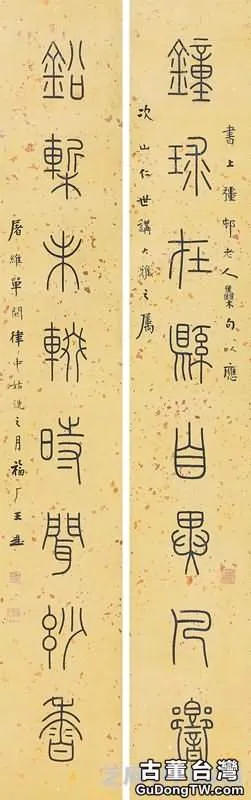 書上彊邨老人集句以應
鐘球在縣自異凡響
次山仁世講大雅之屬
鉛槧未輟時聞妙香
屠維單閼律中姑洗之月福厂王禔
古董台灣
GuDongTW.com